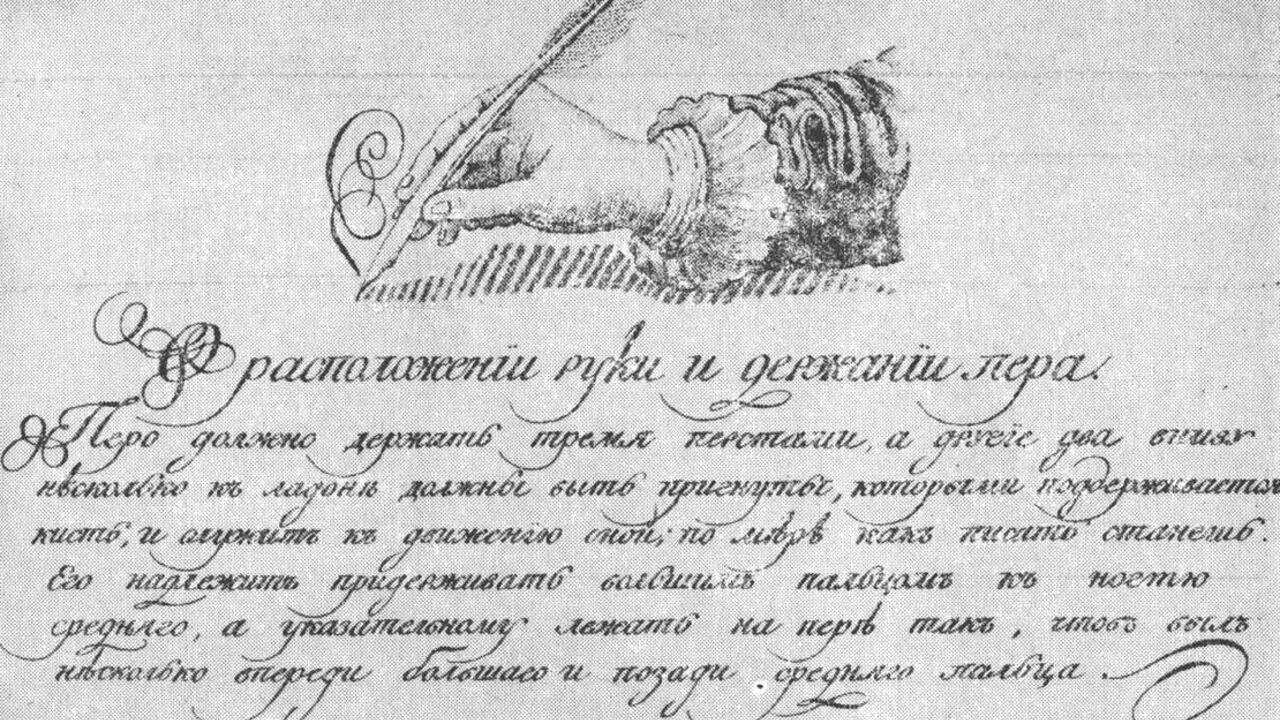 О расположенїи руки и держанїи пера.
Перо должно держать тремя перстами, а другїе два внизу
нѣсколько къ ладонѣ должны быть пригнуты, которыми поддерживается
кисть, и служитъ къ движенїю оной; по мѣрѣ какъ писать станешь.
Его надлежитъ придерживать большимъ пальцомъ къ ногтю
средняго, а указательному лежать на перѣ такъ, чтобъ былъ
нѣсколько впереди большаго и позади средняго пальца.